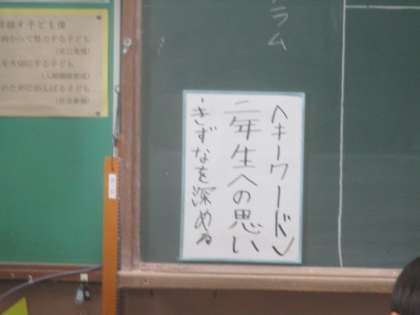 ラム
〈キーワード〉
二年生への思い
・きずなを深める
指す子ども像
向かって努力する子ども
を大切にする子ども